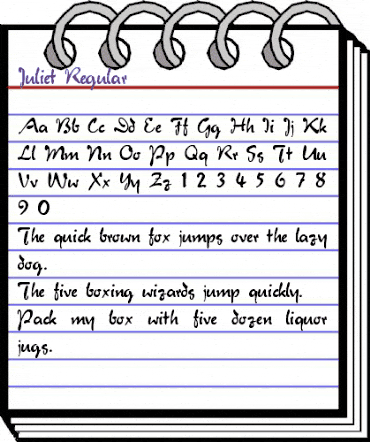 Juliet Regular
Aa Bb Cc Dd Ee Ff Gg Hh Ii Jj Kk
Ll Mm Nn Oo Pp Qq Rr Ss Tt Uu
Vv Ww Xx Yy Zz 1 2 3 4 5 6 7 8
9 0
The quick brown fox jumps over the lazy
dog.
The five boxing wizards jump quickly.
Pack my box with five dozen liquor
jugs.